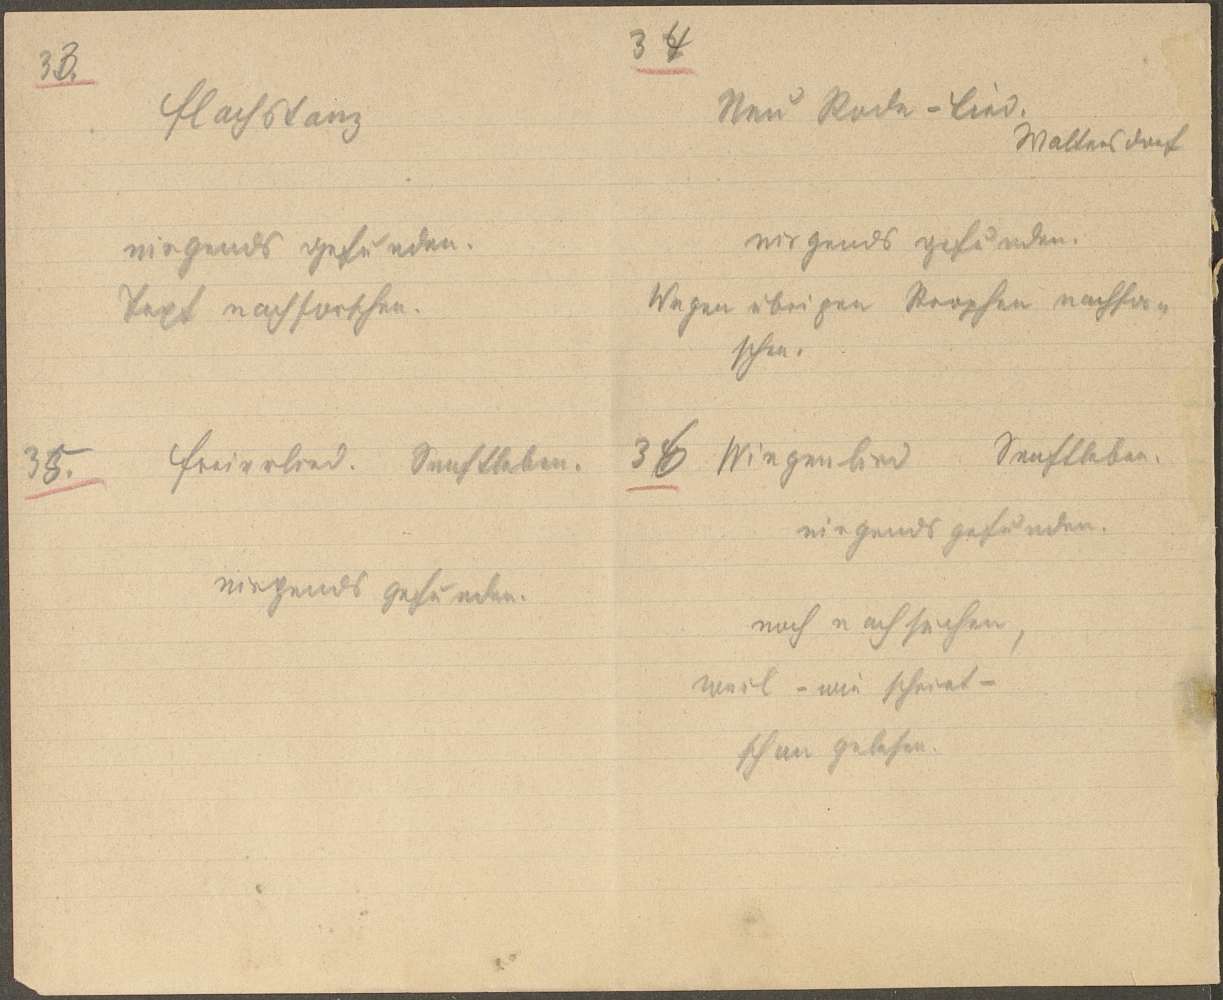 33.
Flachstanz
nirgends gefunden.
Text nachforschen.
34
Neu Rode-Lied.
Waltersdorf
nirgends gefunden.
Wegen übrigen Strophen nachfor-
schen.
35. Freierlied. Senftleben.
nirgends gefunden.
36 Wiegenlied Senftleben.
nirgends gefunden.
noch nachsuchen,
weil - wie scheint -
schon gelesen.